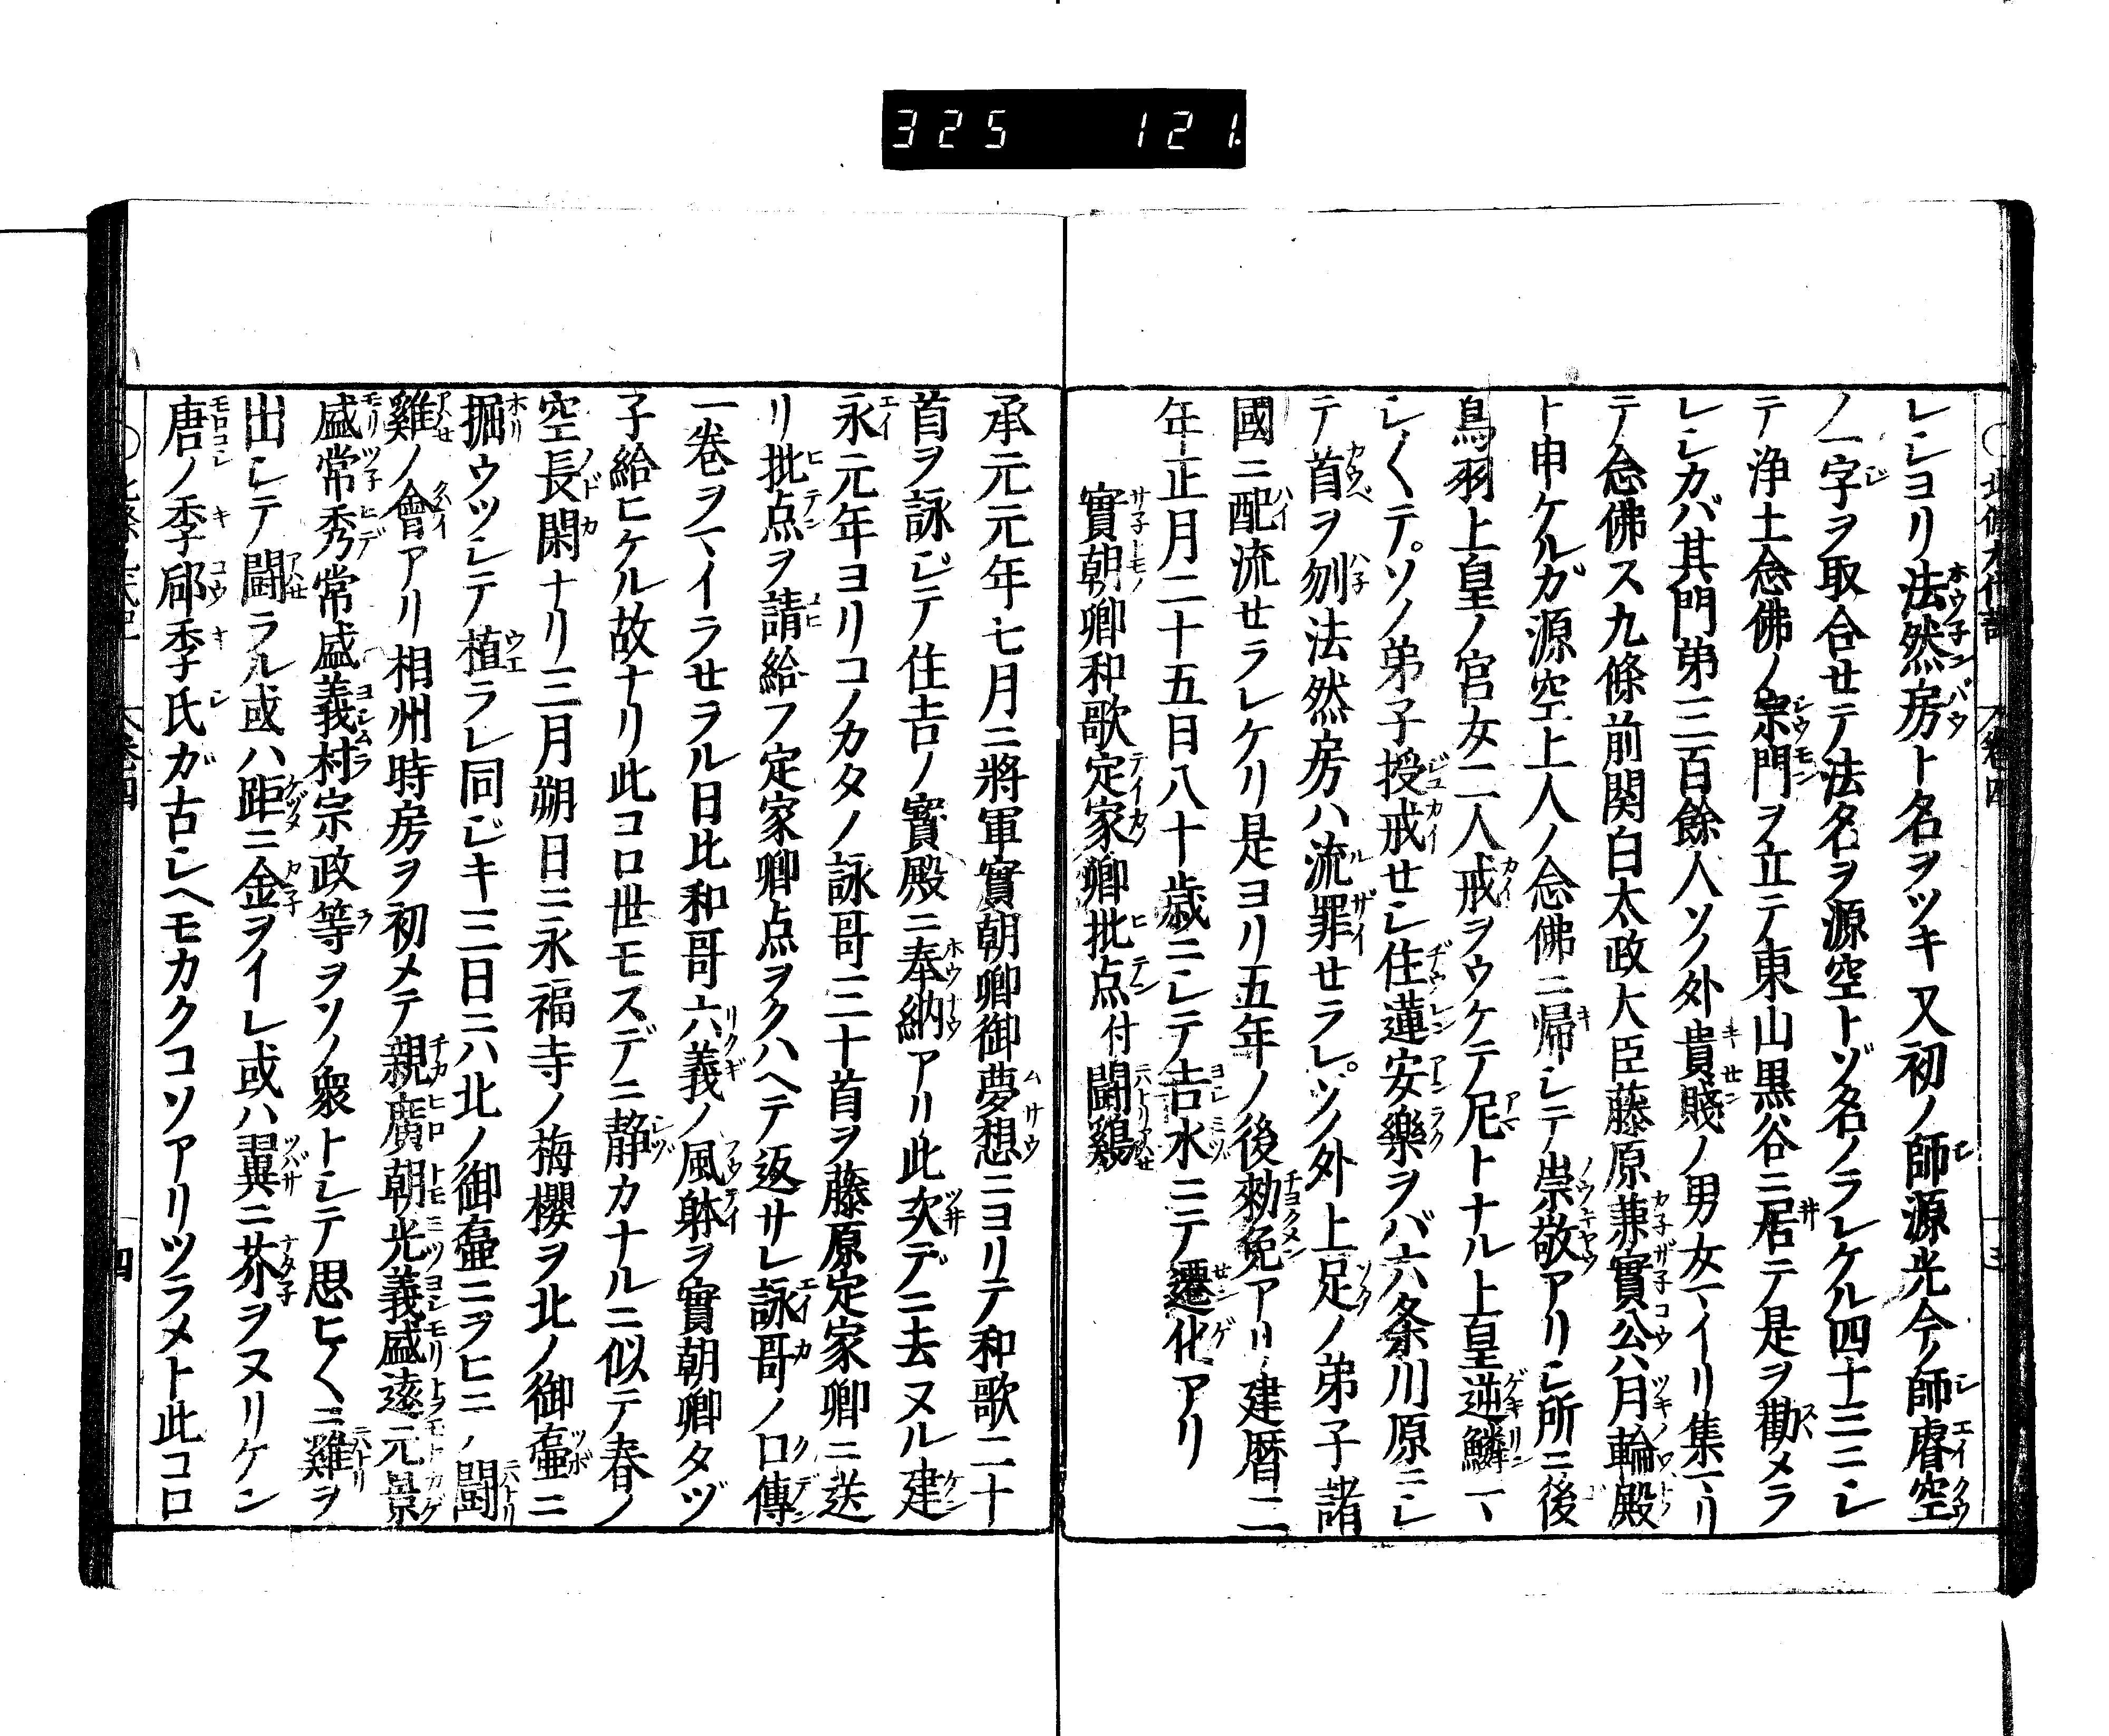 325 121
レシヨリ法然房ト名ヲツキ又初ノ師源光今ノ師睿空
ノ一字ヲ取合セテ法名ヲ源空トゾ名ノラレケル四十三ニシ
テ浄土念佛ノ宗門ヲ立テ東山黒谷ニ居テ是ヲ勸メラ
レシカバ其門弟三百餘人ソノ外貴賤ノ男女マイリ集マリ
テ念佛ス九條前関白太政大臣藤原兼實公月輪殿
ト申ケルガ源空上人ノ念佛ニ帰シテ崇敬アリシ所ニ後
鳥羽上皇ノ官女二人戒ヲウケテ尼トナル上皇逆鱗マ
シ〱テソノ弟子授戒セシ住蓮安樂ヲバ六条川原ニシ
テ首ヲ刎法然房ハ流罪セラレソノ外上足ノ弟子諸
國ニ配流セラレケリ是ヨリ五年ノ後勅免アリ建暦二
年正月二十五日八十歳ニシテ吉水ニテ遷化アリ
實朝卿和歌定家卿批点付鬪鷄
承元元年七月ニ將軍實朝卿御夢想ニヨリテ和歌二十
首ヲ詠ジテ住吉ノ寳殿ニ奉納アリ此次デニ去ヌル建
永元年ヨリコノカタノ詠哥三十首ヲ藤原定家卿ニ送
リ批点ヲ請給フ定家卿点ヲクハヘテ返サレ詠哥ノ口傳
一巻ヲマイラセラル日比和哥六義ノ風躰ヲ實朝卿タヅ
子給ヒケル故ナリ此コロ世モスデニ静カナルニ似テ春ノ
空長閑ナリ三月朔日ニ永福寺ノ梅櫻ヲ北ノ御壷ニ
掘ウツシテ植ラレ同ジキ三日ニハ北ノ御壷ニヲヒニノ鬪
雞ノ會アリ相州時房ヲ初メテ親廣朝光義盛遠元景
盛常秀常盛義村宗政等ヲソノ衆トシテ思ヒ〱ニ雞ヲ
出シテ闘ラル或ハ距ニ金ヲイレ或ハ翼ニ芥ヲヌリケン
唐ノ季郈季氏ガ古シヘモカクコソアリツラメト此コロ
四